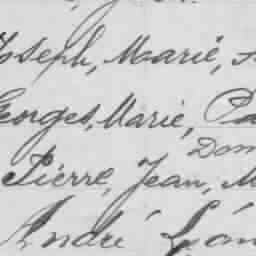 Joseph, Marie,
Georges, Marie,
Dom
Pierre, Jean, M
André Léon